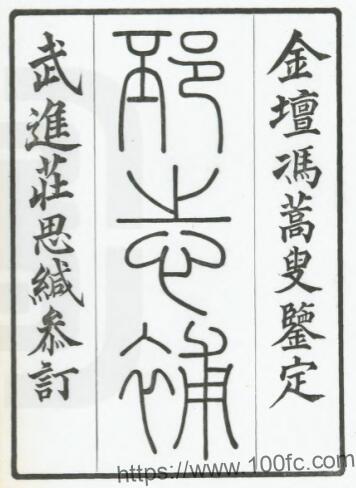 金壇馮蒿叟鑒定
邳志補
武進莊思緘參訂
https://www.100fc.com